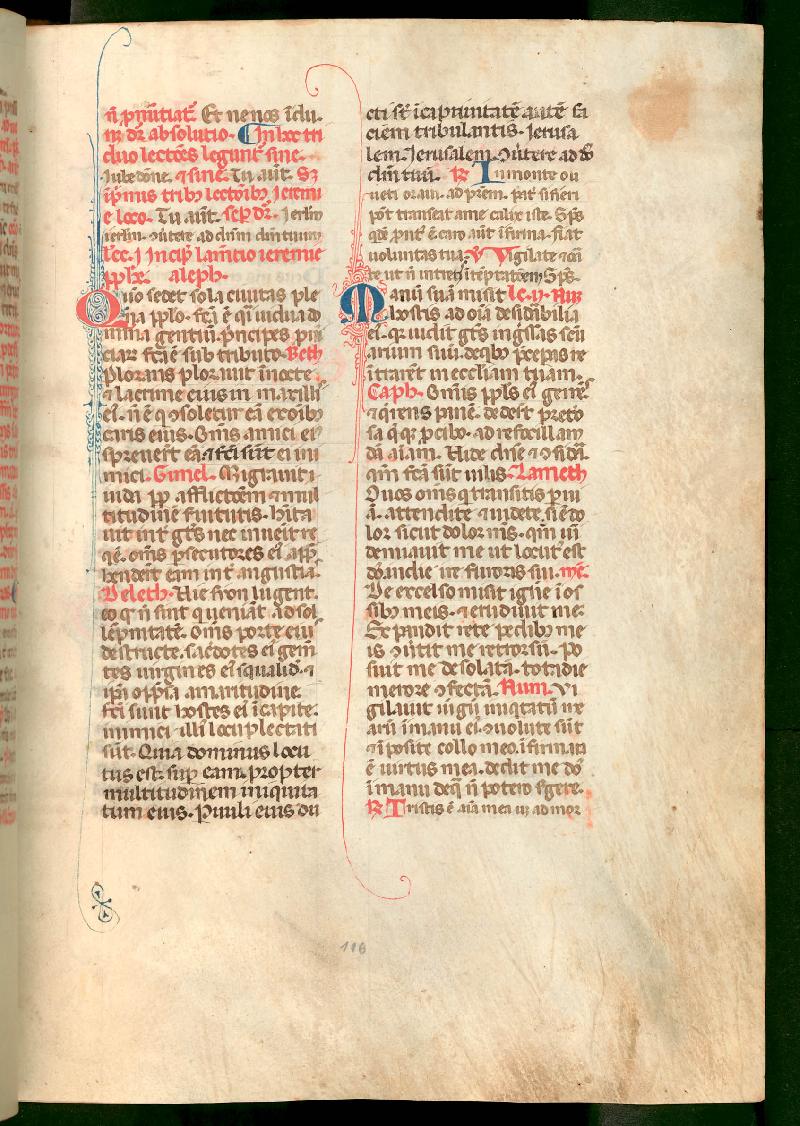 n̄ pnūtiat᷑. Et ne nos īdu.
in dr̄ absolutio. In hoc tri
duo lectōes legunt᷑ sine.
Iube dōne. ⁊ sine. Tu aūt. Sꝫ
ip̄mus tribꝫ lectōibꝫ Jeremi
e loco. Tu aūt. sep dr̄. Ierlm̄
ierlm̄. ꝯūtere ad dn̄m dm̄ tuum
Lēc. j Incip̄ lam̄tio ieremie
ꝓphe. aleph.
Quō sedet sola ciuitas ple
na pplo. fcā ē q̄i uidua do
mina gentiū. p̄nceps pui
ciaꝝ fcā ē sub tributo. Beth
Plorans plorauit ī nocte
⁊ lacrime eius in maxill'
ei'. n̄ ē q ꝯsoletur eā ex oībꝫ
caris eius. Om̄s amici ei'
spreuerr̄t eā ⁊ fci sūt ei ini
mici. Gimel. Migrauit i
uida ꝓp afflictōem ⁊ mul
titudinē seruitutis. hīta
uit int̄ gt̄es nec inueīt re
quiē. om̄s ꝑsecutores ei' app̄
henderr̄t eam int̄ angustia.
Deleth. Uie syon lugent.
eo q n̄ sint q ueniāt ad sol
lēpnitatē. Om̄s porte eiu'
destructe. sac̄dotes ei' gem̄
tes uirgines ei' squalid̄. ⁊
ip̄a opp̄ssa amaritudine.
fci sunt hostes ei' ī capite.
inimici illi' locupletati
sūt. Quia dominus locu
tus est. sup eam. propter
multitudinem iniquita
tum eius. Puuli eius du
cti sūt ī captiuitatē aūtē fa
ciem tribulantis. Jerusa
lem Jerusalem ꝯūtere ad do
dm̄ tuū. ℟ In monte oli
ueti orauī ad p̄rem. pat̄ si fieri
pōt transeat a me calix iste. Sp̄s
qdē p̄mt' ē caro aūt ifirma. fiat
uoluntas tua. ℣ Vigilate ⁊ orā
te ut n̄ intretis ī temptatōem. Sp̄s.
Manū suā misit le. ij. Aui
hostis ad oīa desidībilia
ei'. qꝛ uidit gt̄es īngr̄ssas scū
arium suū. de qbꝫ p̄ceꝑas ne
ītrarēt in eccliam tuam.
Caph. Om̄is ppl's ei' gemēs
⁊ q̄rens panē. dedert̄ p̄cio
sa q̄qꝫ p̄ cibo. ad refocillan
dā aīam. Uide dn̄e ⁊ ꝯsidā.
qm̄ fcā sūt uilis. Lameth
O uos om̄s q transitis p ui
ā. attendite ⁊ uidete. si ē do
lor sicut dolor m̄s. qm̄ uī
demiauit me ut locut' est
dō. in die ire furoris sui. mē.
De excelso misit ignē ī os
sibꝫ meis. ⁊ erudiuit me.
Expandit rete pedibꝫ me
is ꝯūtit me retrorsū. Po
suit me desolatā. tota die
merore ꝯfectā. Num. Vi
gilauit iugū īiq̄tatū me
arū ī manu ei'. ꝯuolute sūt
⁊ īposite collo meo. īfirmata
ē uirtus mea. dedit me dō
ī manu de q n̄ potero sgere.
℟ Tristis ē aīa mea usꝫ ad mor
116